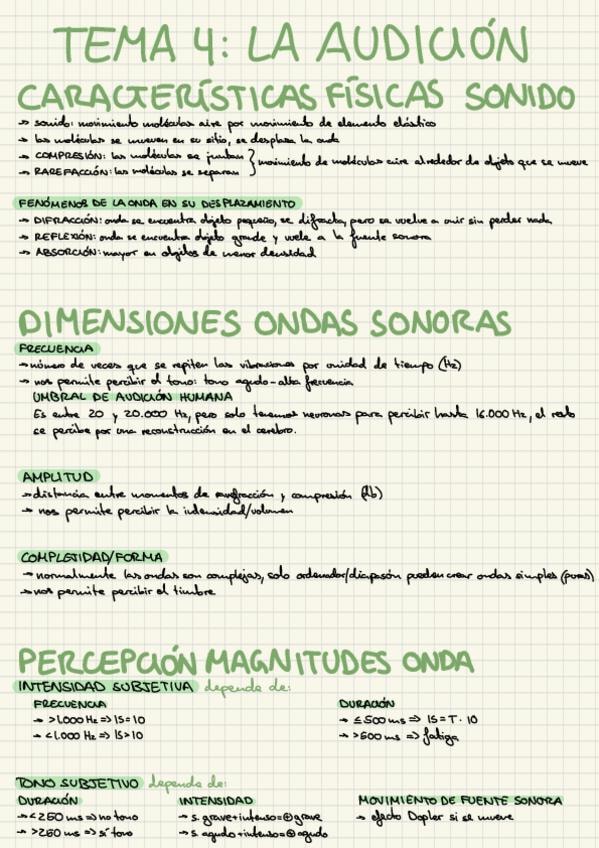 TEMA 4: LA AUDICIÓN
CARACTERÍSTICAS FÍSICAS SONIDO
→ sonido: movimiento moléculas aire por movimiento de elemento elástico
→ las moléculas se mueven en su sitio, se desplaza la onda
→ COMPRESIÓN: las moléculas se juntan } movimiento de moléculas aire alrededor de objeto que se mueve
→ RAREFACCIÓN: las moléculas se separan
FENÓMENOS DE LA ONDA EN SU DESPLAZAMIENTO
→ DIFRACCIÓN: onda se encuentra objeto pequeño, se difracta, pero se vuelve a unir sin perder nada
→ REFLEXIÓN: onda se encuentra objeto grande y vuelve a la fuente sonora
→ ABSORCIÓN: mayor en objetos de menor densidad
DIMENSIONES ONDAS SONORAS
FRECUENCIA
→ número de veces que se repiten las vibraciones por unidad de tiempo (Hz)
→ nos permite percibir el tono: tono agudo-alta frecuencia
UMBRAL DE AUDICIÓN HUMANA
Es entre 20 y 20.000 Hz, pero solo tenemos neuronas para percibir hasta 16.000 Hz, el resto
se percibe por una reconstrucción en el cerebro.
AMPLITUD
→ distancia entre momentos de rarefracción y compresión
→ nos permite percibir la intensidad/volumen
COMPLEJIDAD/FORMA
→ normalmente las ondas son complejas, solo ordenador/diapasón pueden crear ondas simples (puras)
→ nos permite percibir el timbre
PERCEPCIÓN MAGNITUDES ONDA
INTENSIDAD SUBJETIVA depende de:
FRECUENCIA DURACIÓN
→ >1.000 Hz => IS=10 → ≤500 ms => IS=T·10
→ <1.000 Hz => IS>10 → >500 ms => fatiga
TONO SUBJETIVO depende de:
DURACIÓN INTENSIDAD MOVIMIENTO DE FUENTE SONORA
→ <250 ms => no tono → s. grave+intenso=⊕grave → efecto Dopler si se mueve
→ >250 ms => sí tono → s. agudo+intenso=⊕agudo